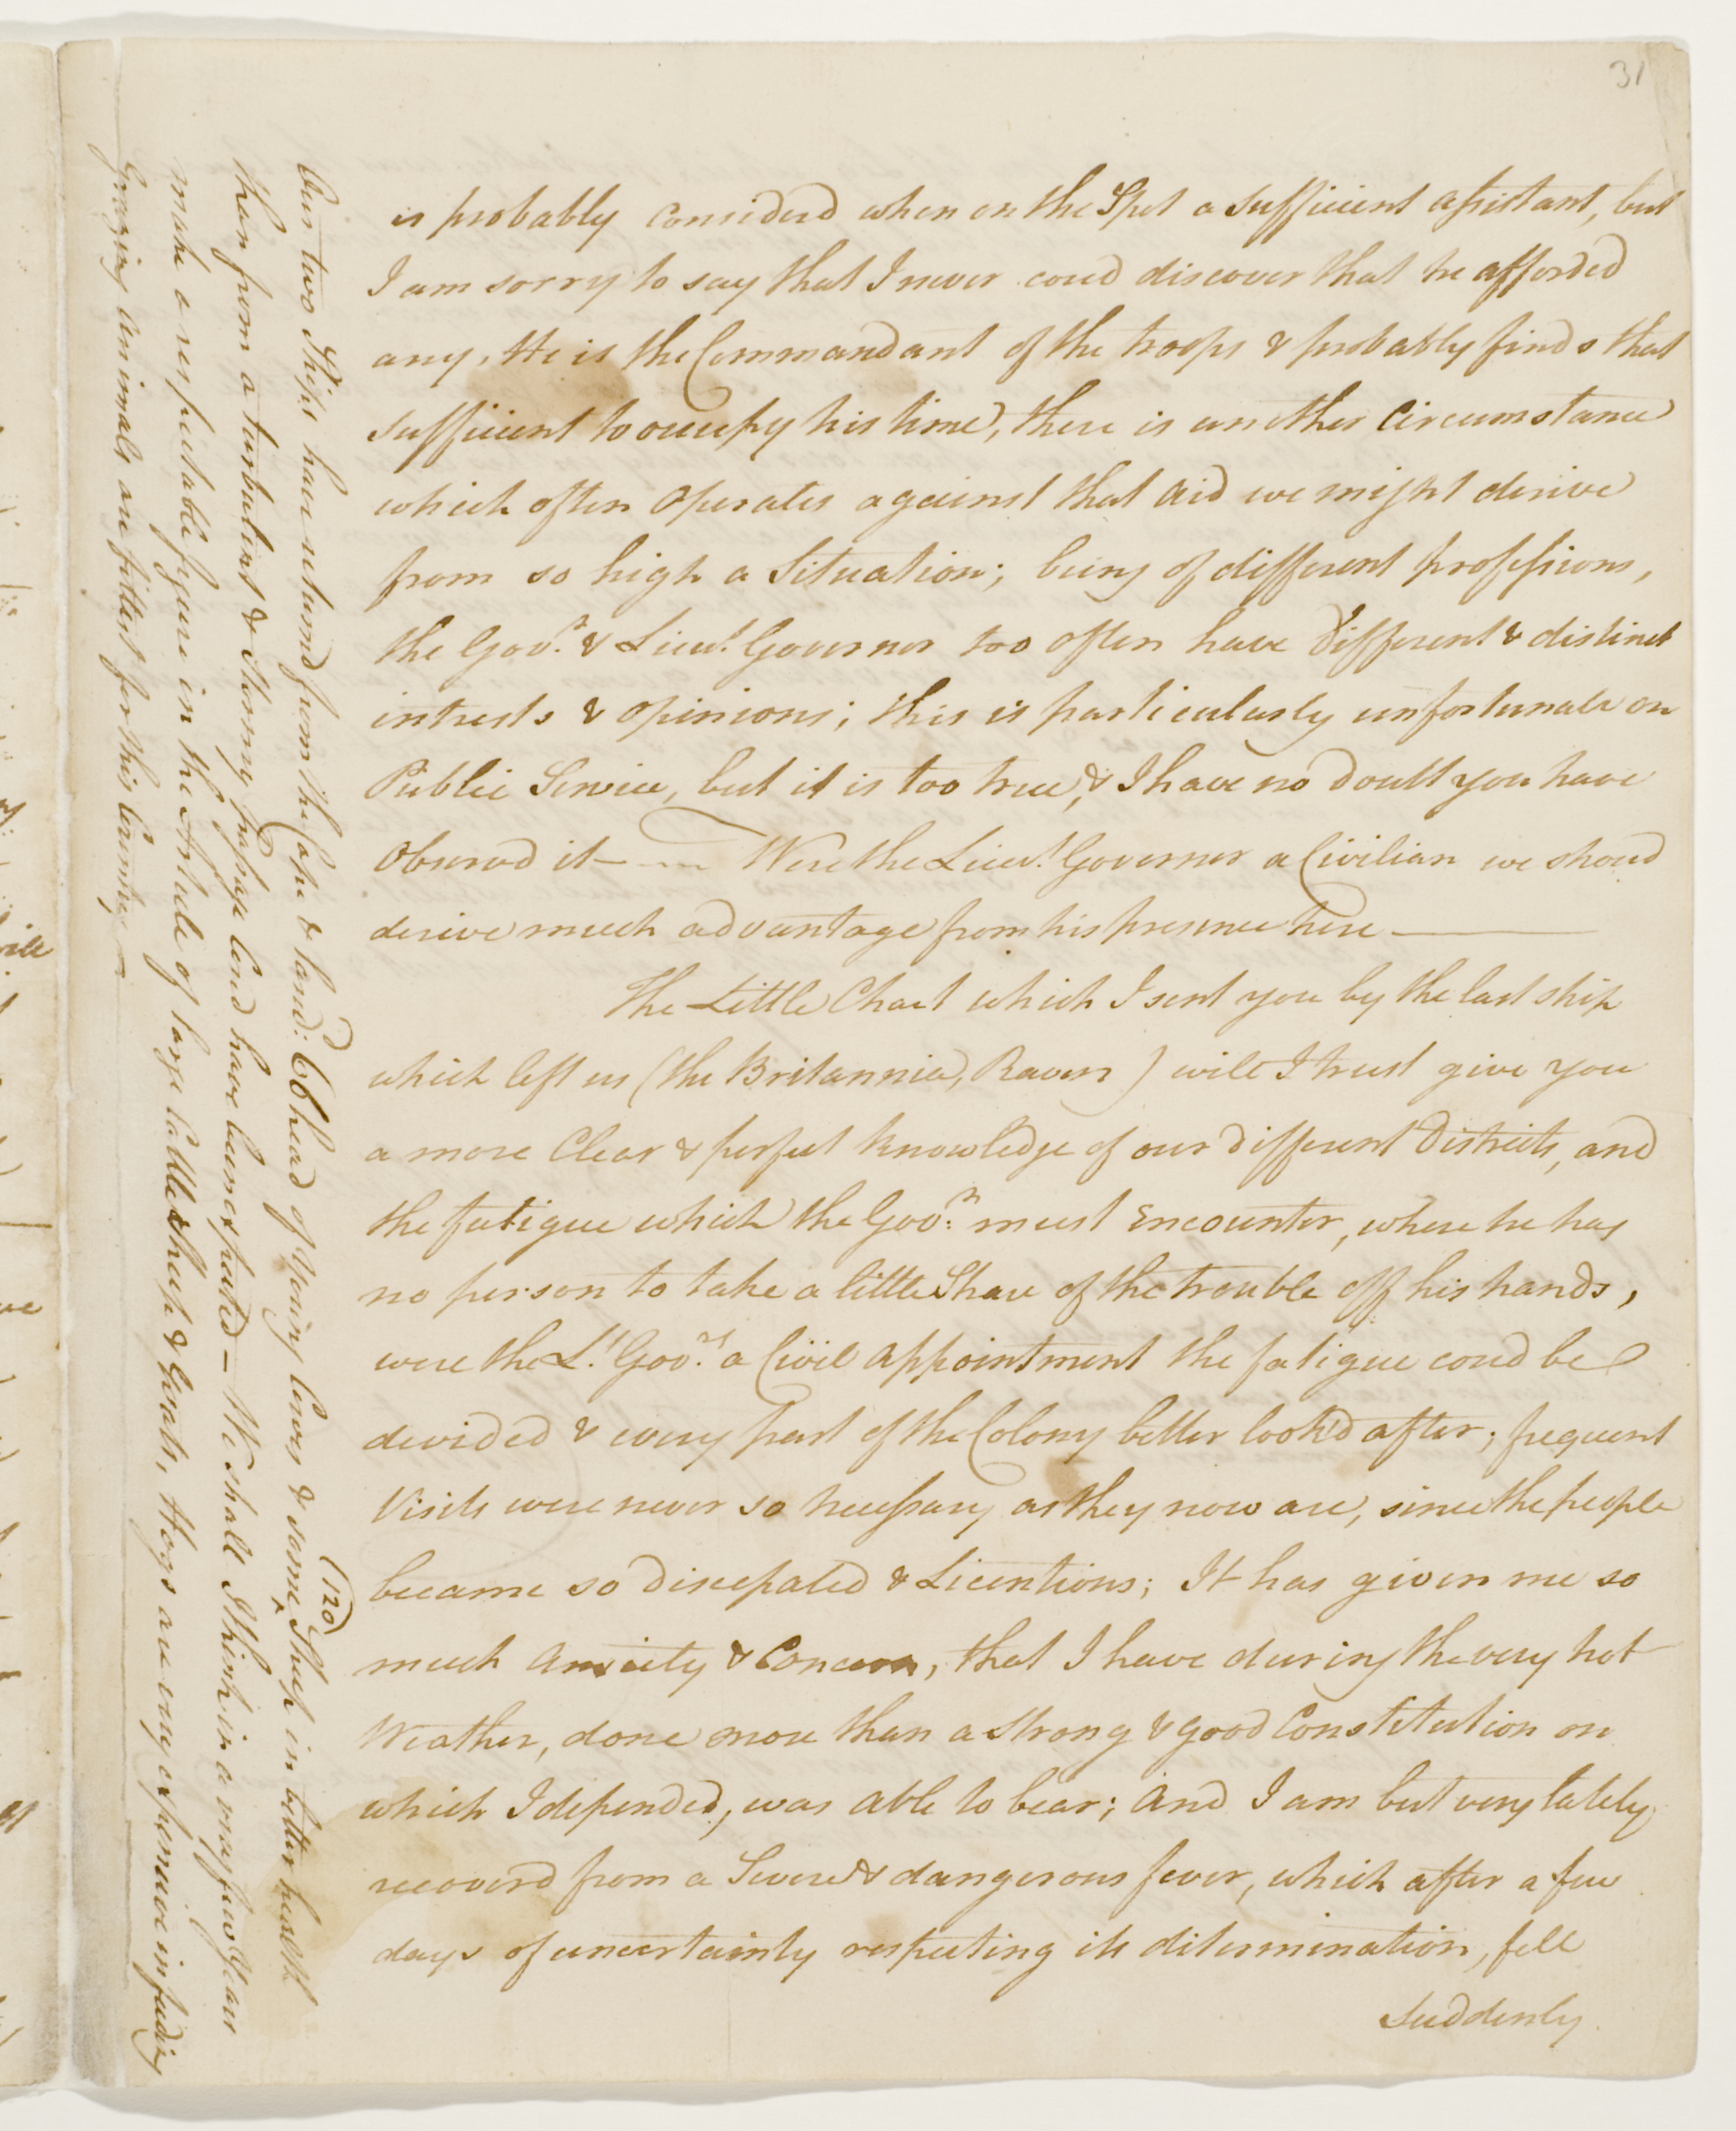 31
is probably considerd when on the Spot a sufficient assistant, but
I am sorry to say that I never coud discover that he afforded
any, He is the Commandant of the troops & probably finds that
sufficient to occupy his time, there is another Circumstance
which often Operates against that Aid we might derive
from so high a Situation; being of different professions,
the Govr. & Lieut. Governor too often have different & distinct
intrests & opinions; this is particularly unfortunate on
Public Service, but it is too true, & I have no doubt you have
Observd it — Were the Lieut. Governor a Civilian we shoud
derive much advantage from his presence here —
The Little Chart which I sent you by the last ship
which left us (the Britannia, Raven) will I trust give you
a more Clear & perfect knowledge of our different Districts, and
the fatigue which the Govr. must Encounter, where he has
no person to take a little Share of the trouble off his hands,
were the Lt. Govr. a Civil Appointment the fatigue coud be
devided & every part of the Colony better look'd after; frequent
Visits were never so necessary as they now are, since the people
became so discepated & Licentious; It has given me so
much Anxiety & Concern, that I have during the very hot
Weather, done more than a strong & good Constitution on
which I depended, was able to bear; And I am but very lately
recoverd from a Severe & dangerous fever, which after a few
days of uncertainty respecting its ditermination, fell
Suddenly
Our two Ships have returnd from the Cape & land: 60 head of Young Cows & some (120) Sheep in better health
than from a turbulent & Stormy passage Coud have been expected — We shall I think in a very few Years
make a respectable figure in the Article of large Cattle Sheep & Goats, Hogs are very expensive in feeding
Grazing animals are fittest for this Country —